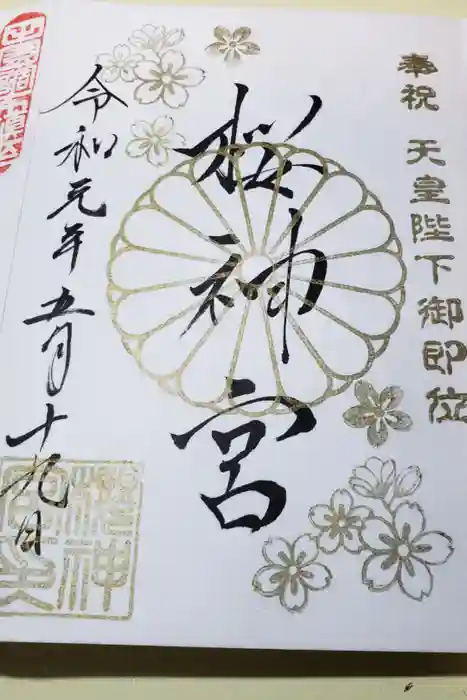 奉祝 天皇陛下御即位
桜神宮
令和元年 五月十九日